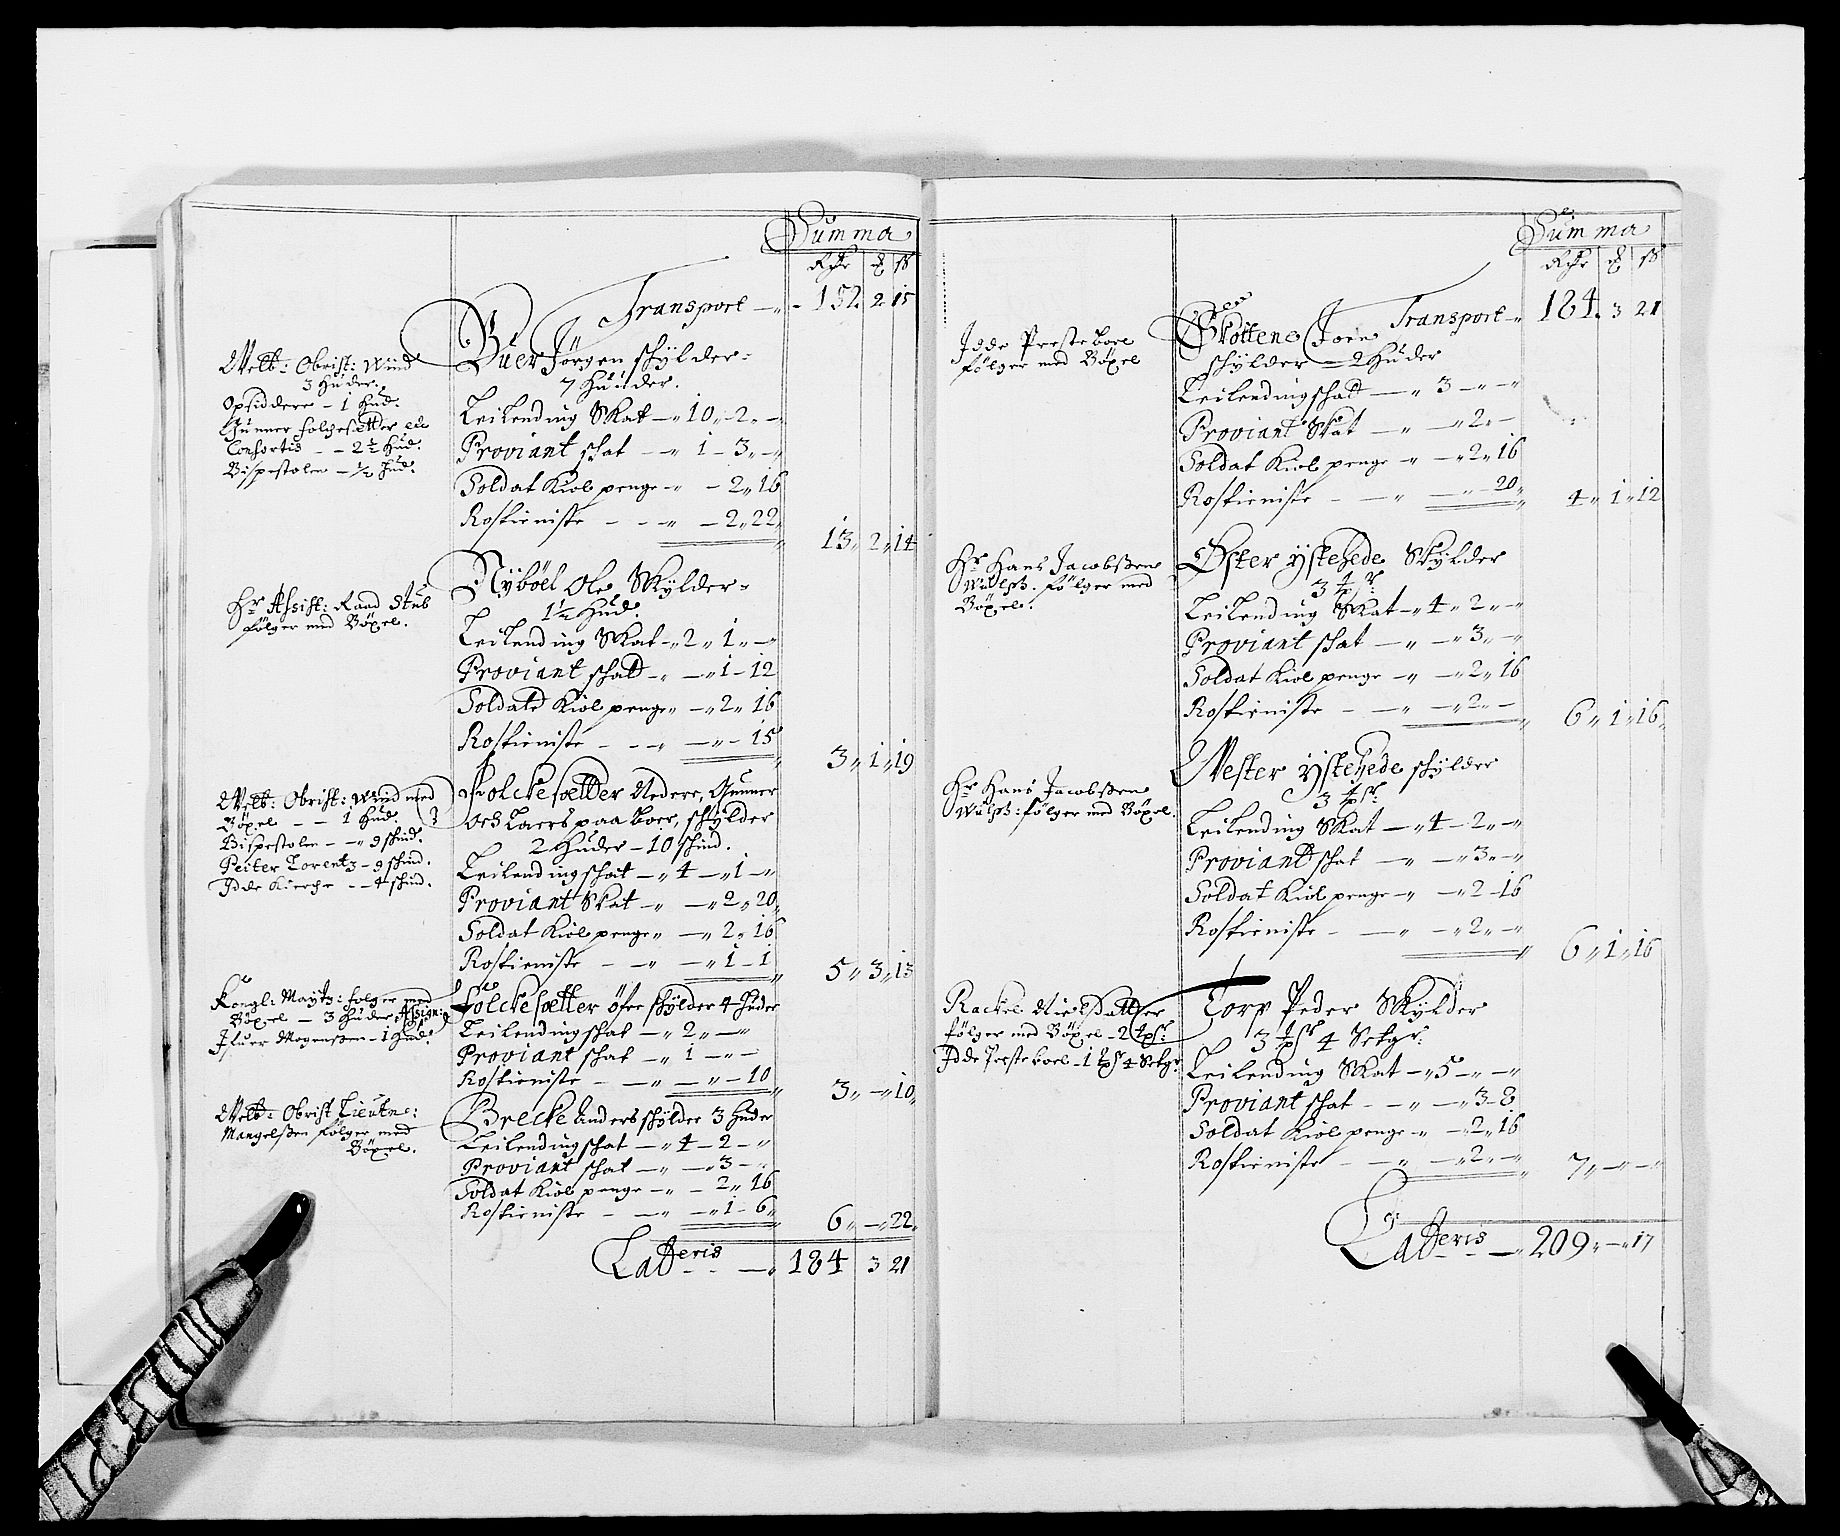 Summa
Rdr ß
Transport – 152 2 15
Welb: Obrist: Wind
3 Huder.
Opsiddere – 1 Hud.
Gunner folchesetter etc
Consortis – – 2½ Hud.
Bispestolen – ½ Hud.
Buer Jörgen skylder
7 Huuder.
Leilending Skat – 10 – 2 –
Proviant skat – 1 – 3 –
Soldat Kiol penge – 2 16
Rostieniste – – – 2 22
13 2 14
Hr Assist: Raad Stub
følger med Bøxel.
Nyböel Ole Skylder
1½ Hud.
Leilending Skat – 2 1 –
Proviant skatt – – 1 – 12
Soldatt Kiol penge – 2 16
Rostieniste – – – – 15
3 1 19
Welb: Obrist: Wind med
Bøxel – – 1 Hud.
Bispestolen – – 9 skind.
Peiter Lorentz – 9 skind.
Idde Kierche – – 4 skind.
Folckesetter Nedere, Gunner
och Laers paa boer, skylder
2 Huder – 10 skind.
Leilending skat – 4 – 1 –
Proviant Skat – – 2 20
Soldat Kiol penge – 2 16
Rostieniste – – – 1 – 1
5 3 13
Kongl: Mayts: følger med
Bøxel – 3 Huder Assign:
Ifuer Mogensen – 1 Hud.
Folckesetter öfre skylder 4 Huder
Leilending skat – 2 – –
Proviant skat – 1 – –
Rostieniste – – – – 10
3 – 10
Welb: Obrist Lieutne:
Mangelsen følger med
Bøxel.
Brecke Anders skylder 3 Huder
Leilending skat – 4 – 2 –
Proviant skat – – 3 –
Soldat Kiol penge – – 2 16
Rostieniste – – – 1 – 6
6 – 22
Latteris – 184 3 21
Summa
Rdr ß
Transport 184 3 21
Idde Preste boel
følger med Bøxel
Skotten Joen
skylder – 2 Huder
Leilending skatt – 3 – –
Proviant Skat – – 2 –
Soldat Kiol penge – 2 16
Rostieniste – – – – 20
4 1 12
Hr Hans Jacobsen
Wulfs. følger med
Bøxel.
Øster ystehede Skylder
Leilending Skat – 4 2 –
Proviant skat – – 3 –
Soldat Kiol penge – – 2 16
Rostieniste – – – 2 –
6 1 16
Hr Hans Jacobsen
Wulfs: følger med Bøxel.
Wester ystehede skylder
Leilending Skat – 4 – 2 –
Proviant skat – – 3 –
Soldat Kiol penge – – 2 – 16
Rostieniste – – – 2 –
6 1 16
følger med Bøxel – 2
Idde Preste boel – 1 4 Setgr.
Torp Peder Skylder
3 4 Setgr:
Leilending Skat – 5 – –
Proviant skat – – – 3 – 8
Soldat Kiol penge – – 2 16
Rostieniste – – – 2 –
7 – –
Latteris – 209 – 17